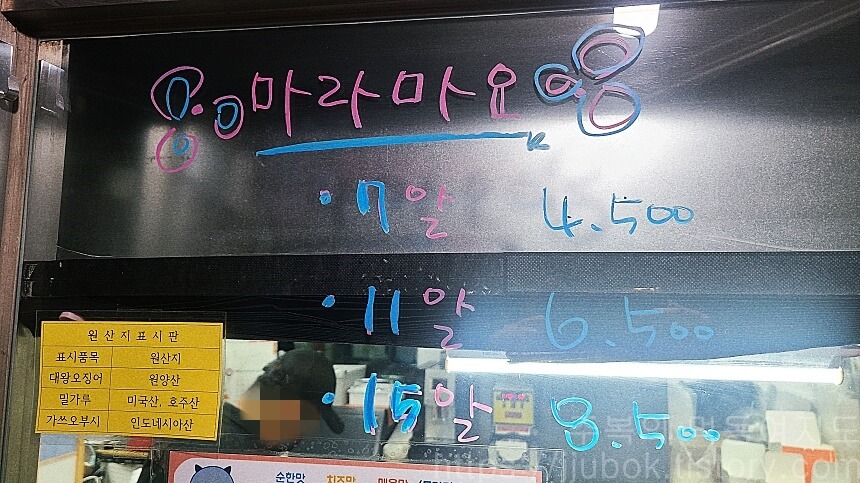 마라마요
·7알 4.500
·11알 6.500
·15알 8.500
원산지표시판
표시품목 원산지
대왕오징어 원양산
밀가루 미국산, 호주산
가쓰오부시 인도네시아산
순한맛 치즈맛 매운맛
https://jjubok.tistory.com